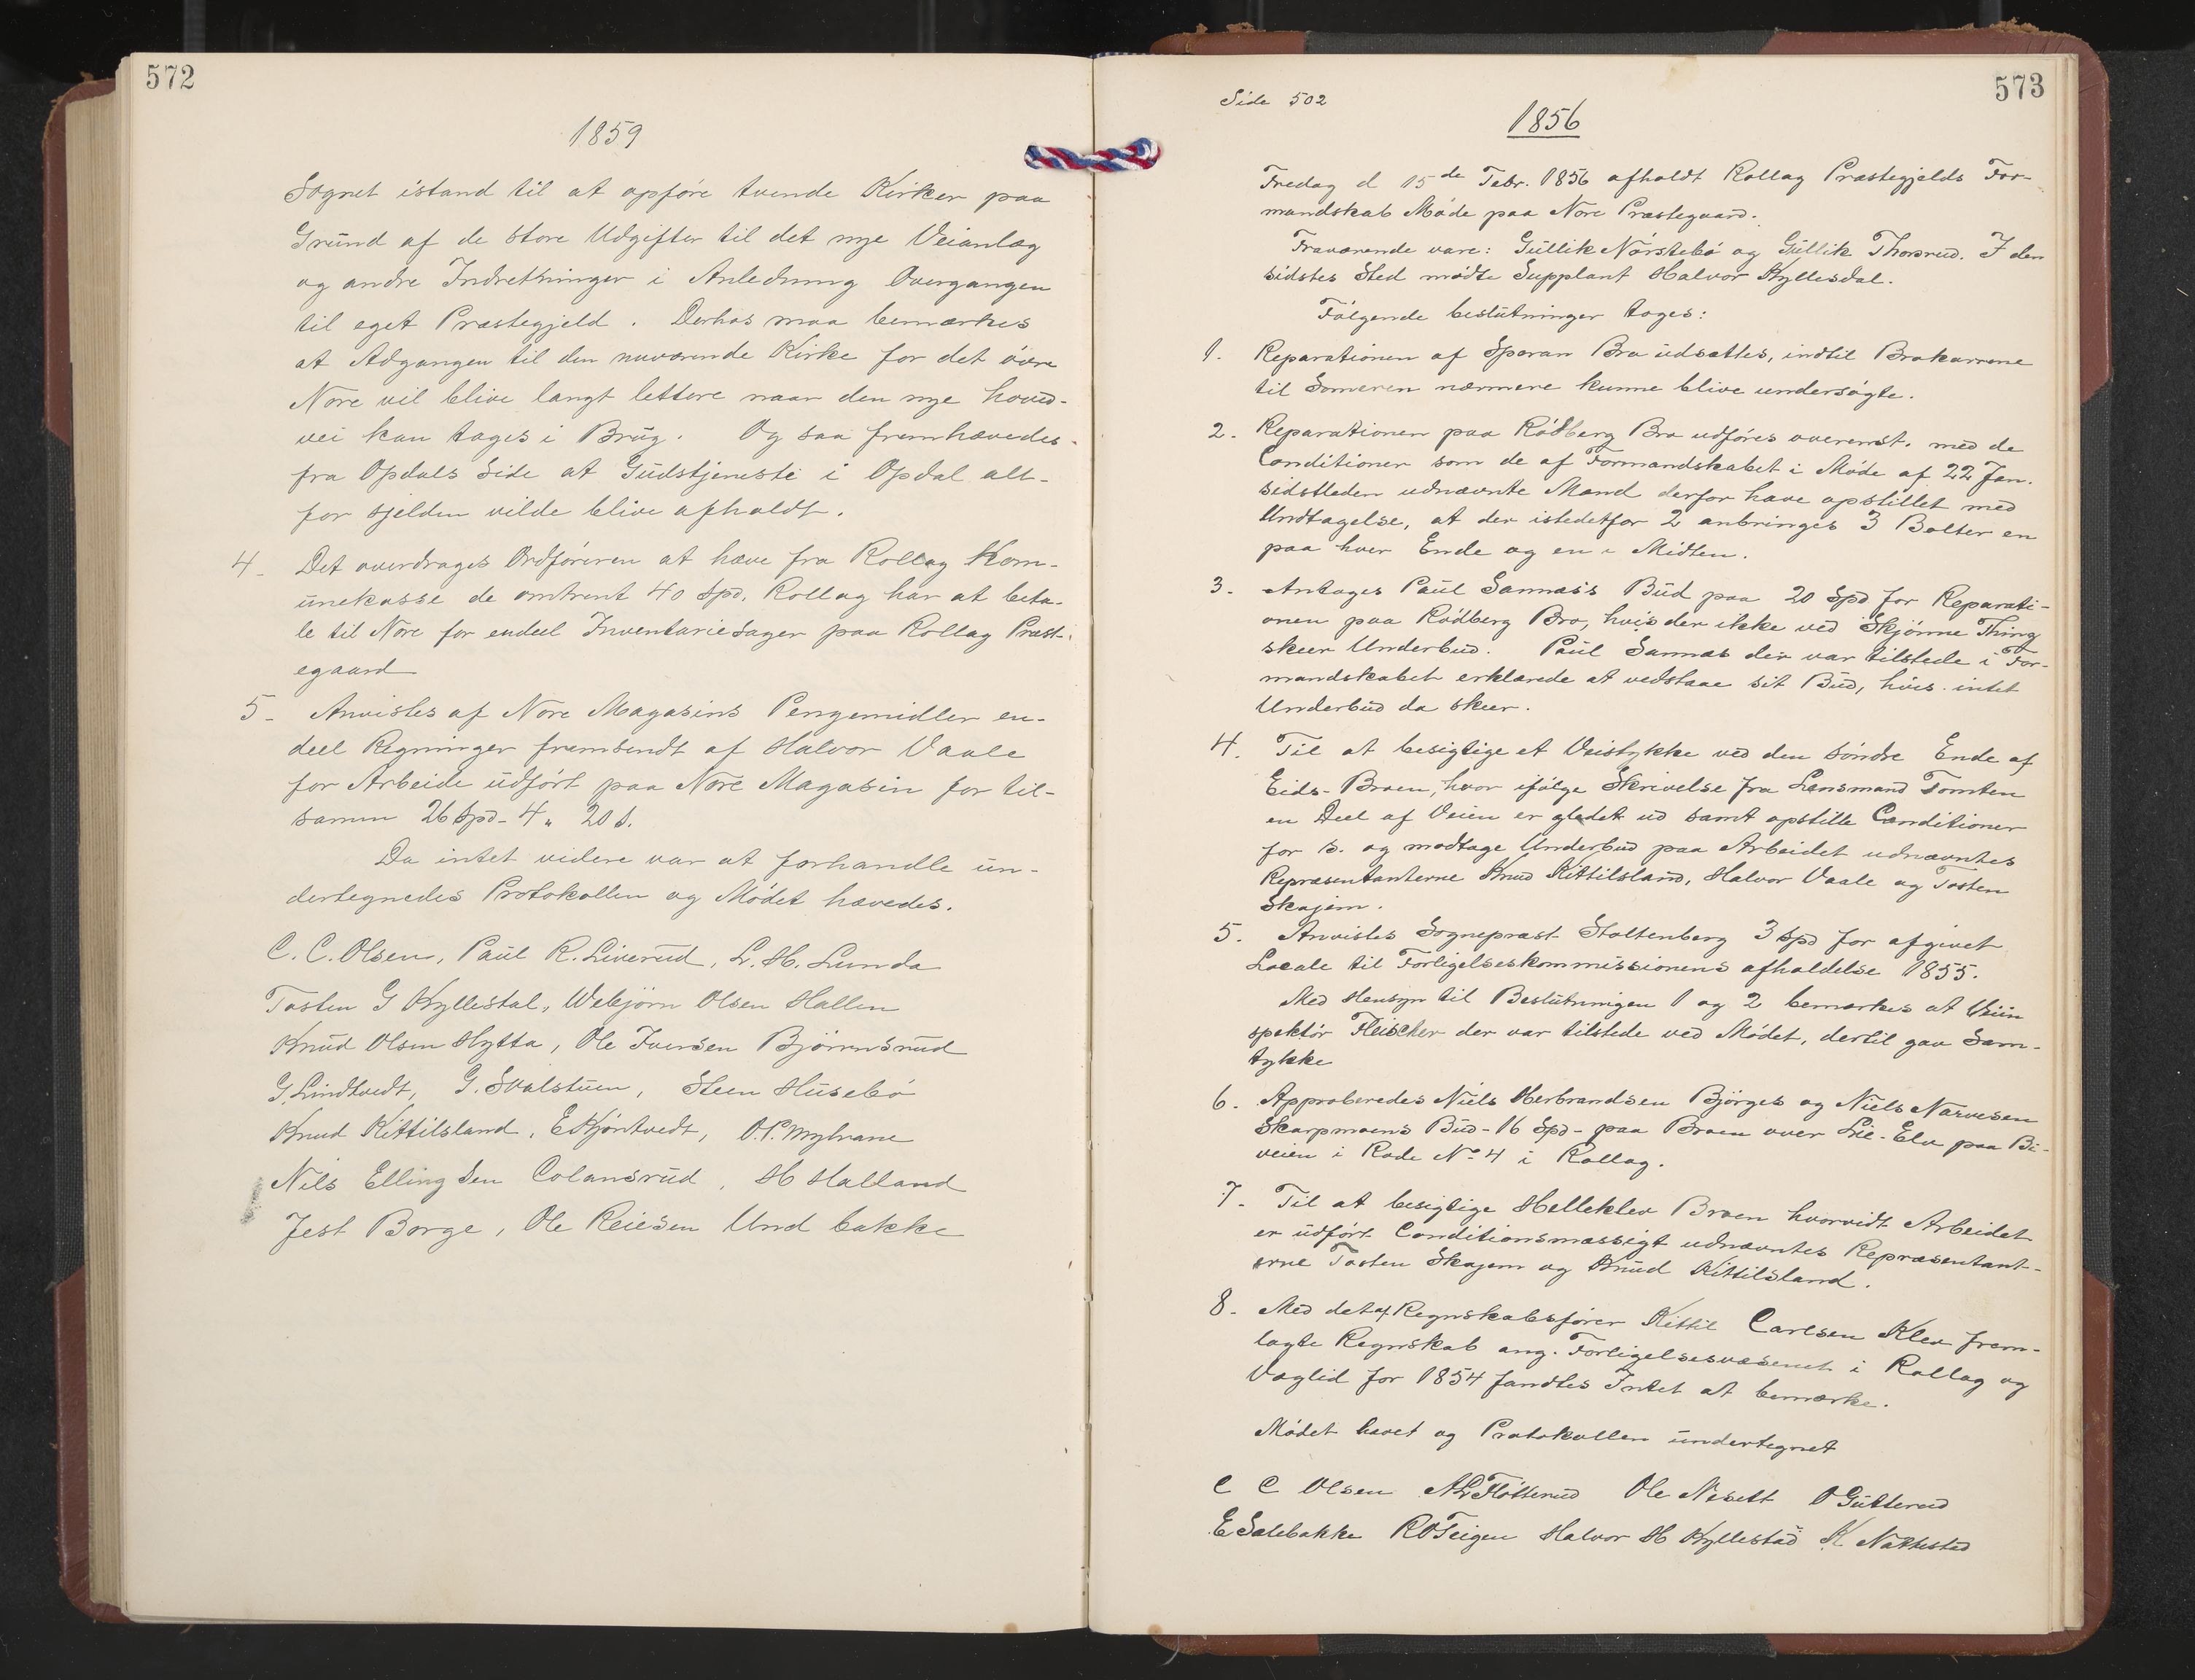 572
1859
Sognet istand til at opføre tvende Kirker paa
Grund af de store Udgifter til det nye Veianlæg
og andre Indretninger i Anledning Overgangen
til eget Præstegjeld. Derhos maa bemærkes
at Adgangen til den nuværende Kirke for det øvre
Nore vil blive langt lettere naar den nye hoved-
vei kan tages i Brug. Og saa fremhævedes
fra Opdals Side at Gudstjeneste i Opdal alt-
for sjelden vilde blive afholdt.
4. Det overdrages Ordføreren at hæve fra Rollag Kom-
unekasse de omtrent 40 Spd. Rollag har at beta-
le til Nore for endeel Inventariesager paa Rollag Præst-
egaard
5. Anvistes af Nore Magasins Pengemidler en-
deel Regninger fremsendt af Halvor Vaale
for Arbeide udført paa Nore Magasin for til-
samm 26 Spd - 4 " 20 s.
Da intet videre var at forhandle un-
dertegnedes Protokollen og Mødet hævedes.
C. C. Olsen, Paul R. Liverud, L. H. Lunda
Tosten G Kyllestal, Webjørn Olsen Hallen
Knud Olsen Hytta, Ole Iversen Bjørnsrud
G. Lindtvedt, G. Svalstuen, Steen Husebø
Knud Kittilsland, E Kjøntvedt, O. P. Myhrane
Nils Ellingsen Colansrud, H Halland
Jest Borge, Ole Reiersen Und bakke
573
Side 502
1856
Fredag d 15de Febr. 1856 afholdt Rollag Præstegjelds For-
mandskab Møde paa Nore Præstegaard.
Fraværende vare: Gullik Nørstebø og Gullik Thorsrud. I den
sidstes Sted mødte Supplant Halvor Kyllesdal.
Følgende beslutninger toges:
1. Reparationen af Sporan Bro udsættes, indtil Brokarrene
til Someren nærmere kunne blive undersøgte.
2. Reparationen paa Rødberg Bro udføres overenst. med de
Conditioner som de af Formandskabet i Møde af 22 Jan.
sidstleden udnævnte Mænd derfor have opstillet med
Undtagelse, at der istedetfor 2 anbringes 3 Bolter en
paa hver Ende og en i Midten.
3. Antages Paul Sannæs's Bud paa 20 Spd for Reparati-
onen paa Rødberg Bro, hvis der ikke ved Skjønne Thing
skeer Underbud. Paul Sannæs der var tilstede i For-
mandskabet erklærede at vedstaae sit Bud, hvis intet
Underbud da skeer.
4. Til at besigtige et Veistykke ved den søndre Ende af
Eids-Broen, hvor ifølge Skrivelse fra Lensmand Tomten
en Deel af Veien er gledet ud samt opstille Conditioner
for s. og modtage Underbud paa Arbeidet udnævntes
Repræsentanterne Knud Kittilsland, Halvor Vaale og Tosten
Skajem.
5. Anvistes Sognepræst Stoltenberg 3 Spd for afgivet
Locale til Forligelseskommissionens afholdelse 1855.
Med Hensyn til Beslutningen 1 og 2 bemærkes at Veiin
spektør Fleischer der var tilstede ved Mødet, dertil gav Sam-
tykke
6. Approberedes Niels Herbrandsen Bjørges og Niels Narvesen
Skarpmoens Bud - 16 Spd - paa Broen over Lie-Elv paa Bi-
veien i Rode No 4 i Rollag.
7. Til at besigtige Helleklev Broen hvorvidt Arbeidet
er udført Conditionsmæssigt udnævntes Repræsentant-
erne Tosten Skajem og Knud Kittilsland.
8. Med det af Regnskabsfører Kittil Carlsen Klev frem-
lagte Regnskab ang. Forligelsesvæsenet i Rollag og
Væglid for 1854 fandtes Intet at bemærke.
Mødet hævet og Protokollen undertegnet
C C Olsen Ole Nesett O Gutterud
E Salebakke R O Teigen Halvor H Kyllestad K Nattestad